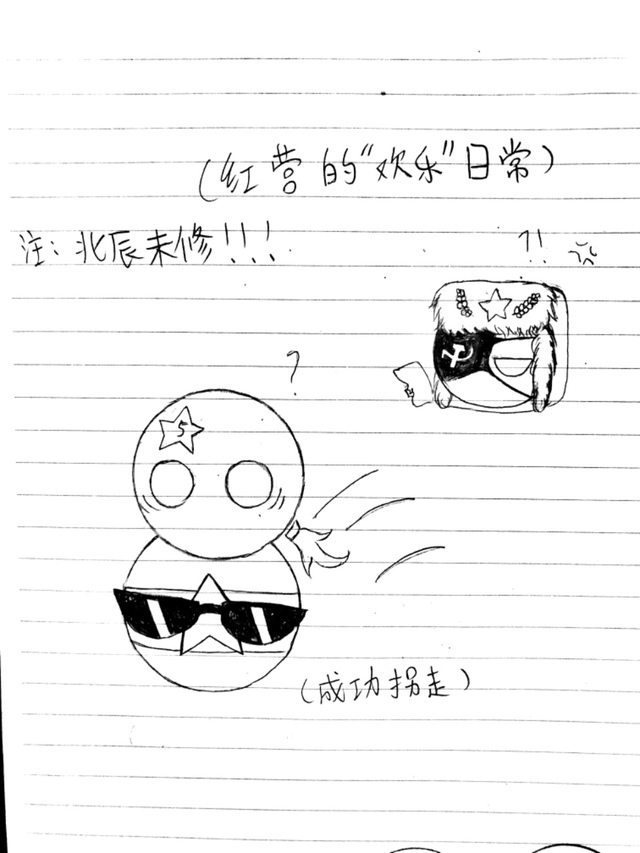 (红营的“欢乐”日常)
注：北辰未修!!!
?!
?
5
(成功拐走)